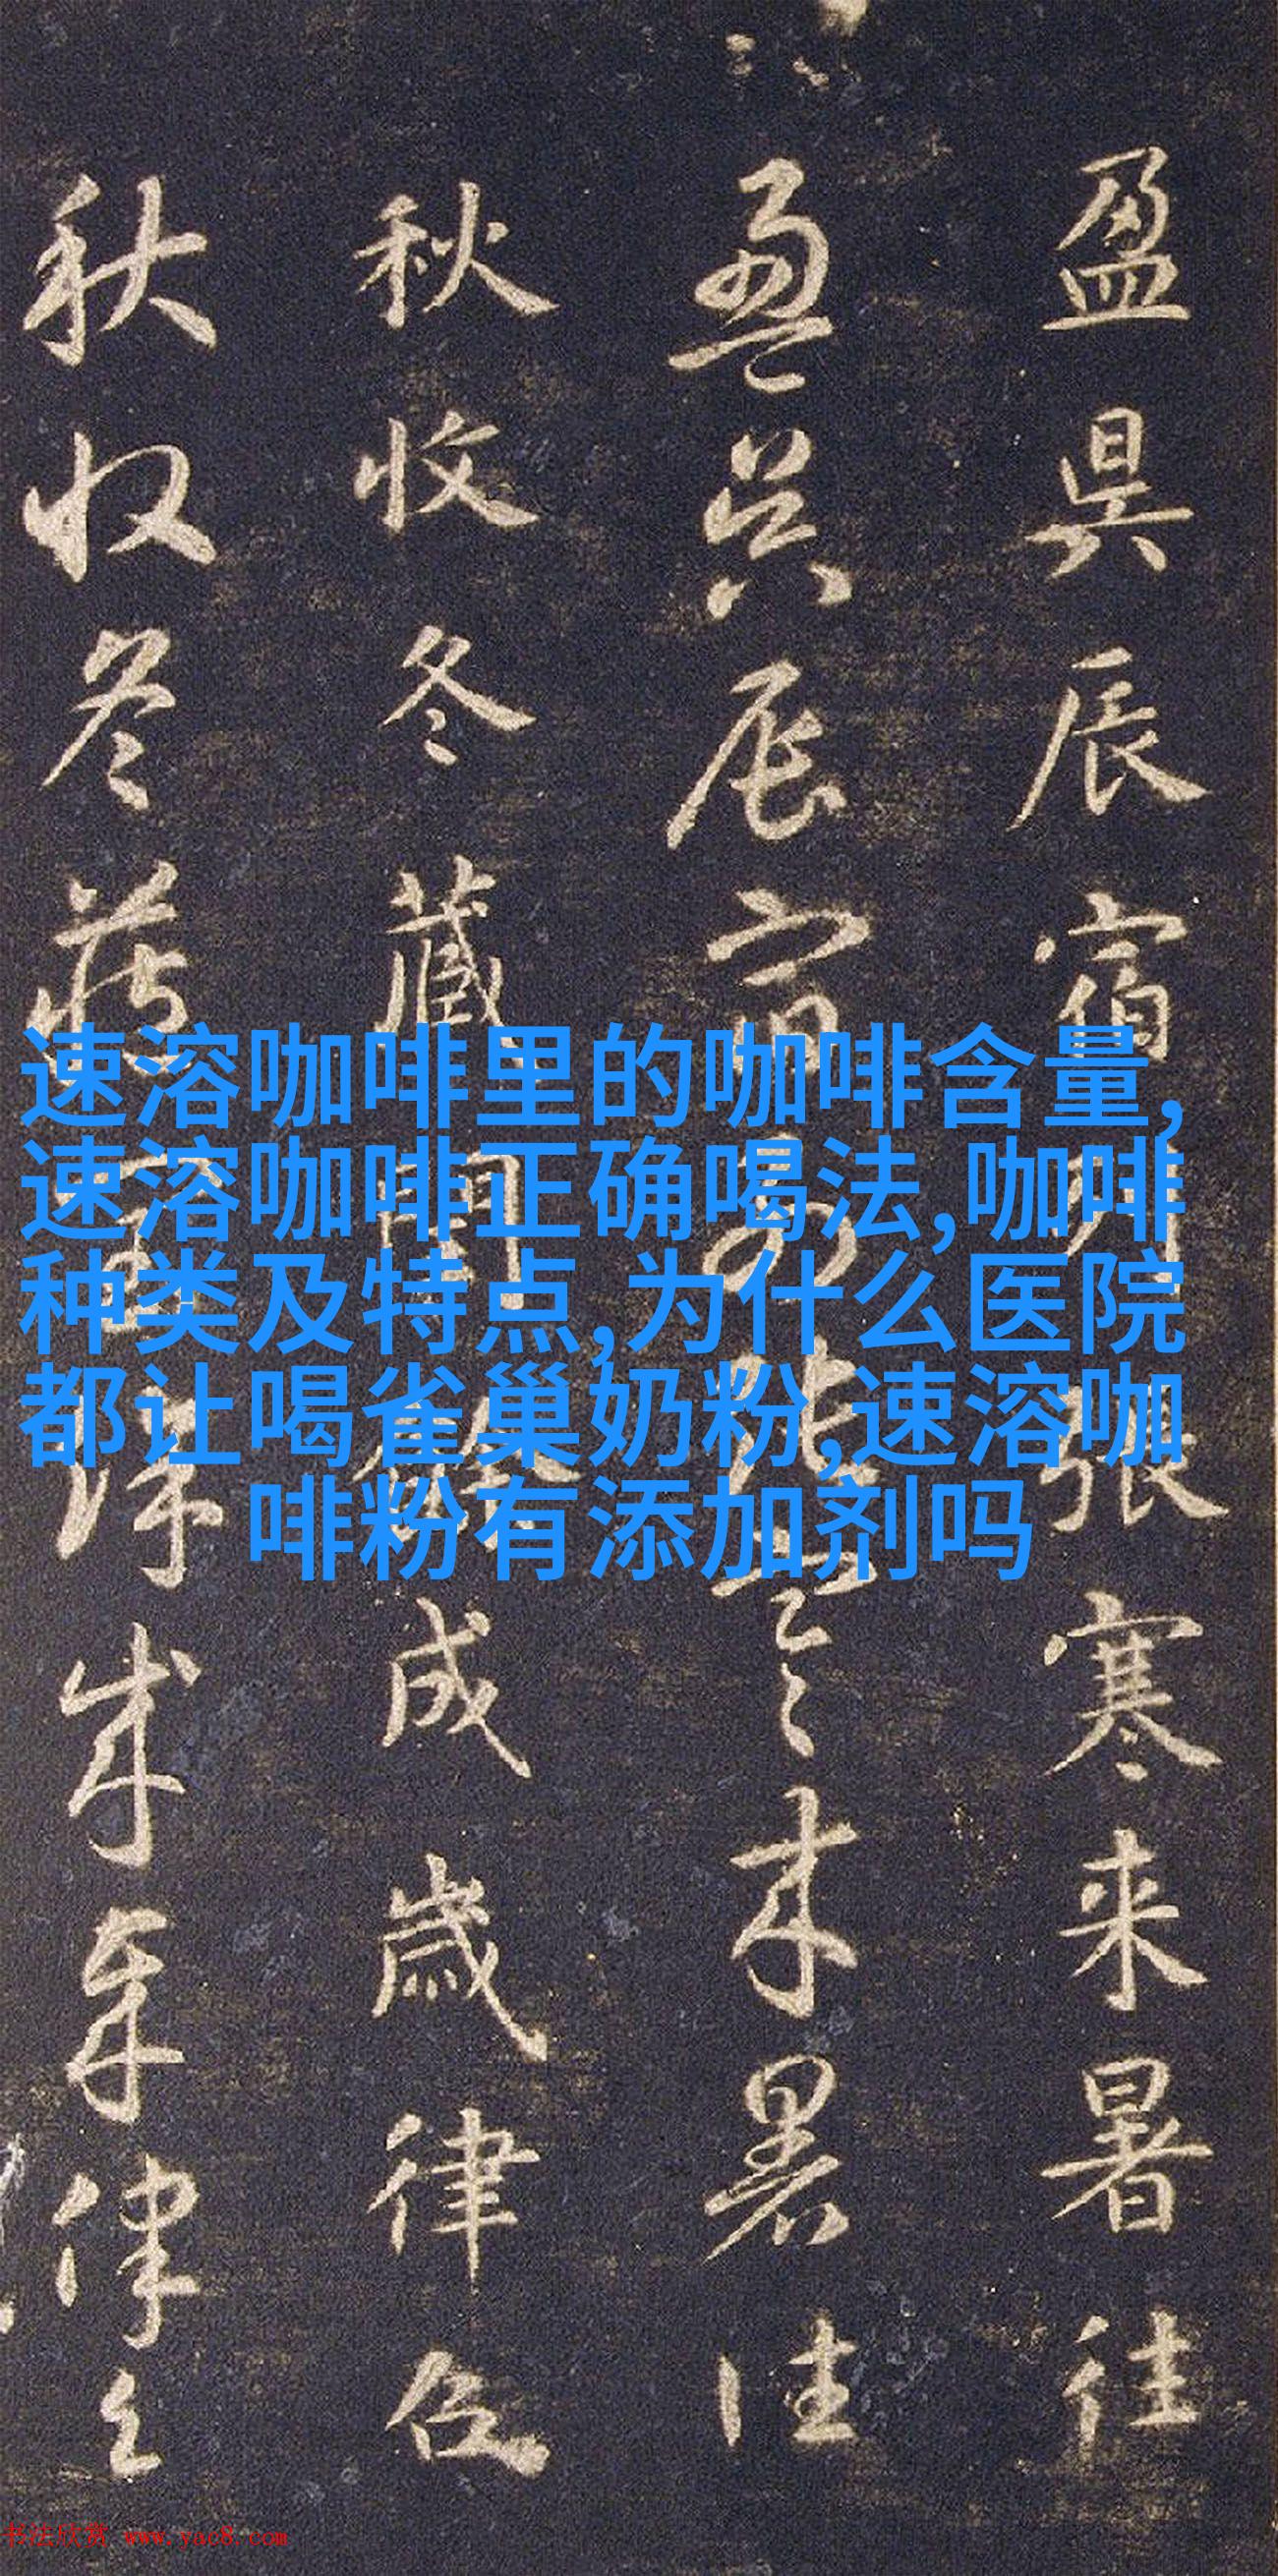 盈昃辰宿列張寒来暑往
盈昃辰宿列張寒来暑往
秋收冬藏閏餘成歲律吕
秋收冬藏閏餘成歲律吕
速溶咖啡里的咖啡含量,
速溶咖啡正确喝法,咖啡
种类及特点,为什么医院
都让喝雀巢奶粉,速溶咖
啡粉有添加剂吗
书法欣赏 www.yac8.com